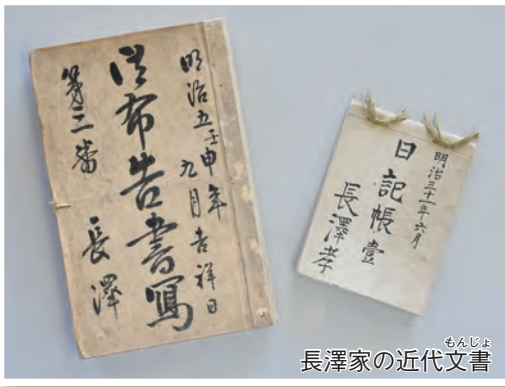 明治五壬申年
九月吉祥日
御布告書寫
第二番
長澤
明治三十一年六月
日記帳壹
長澤孝
もんじょ
長澤家の近代文書